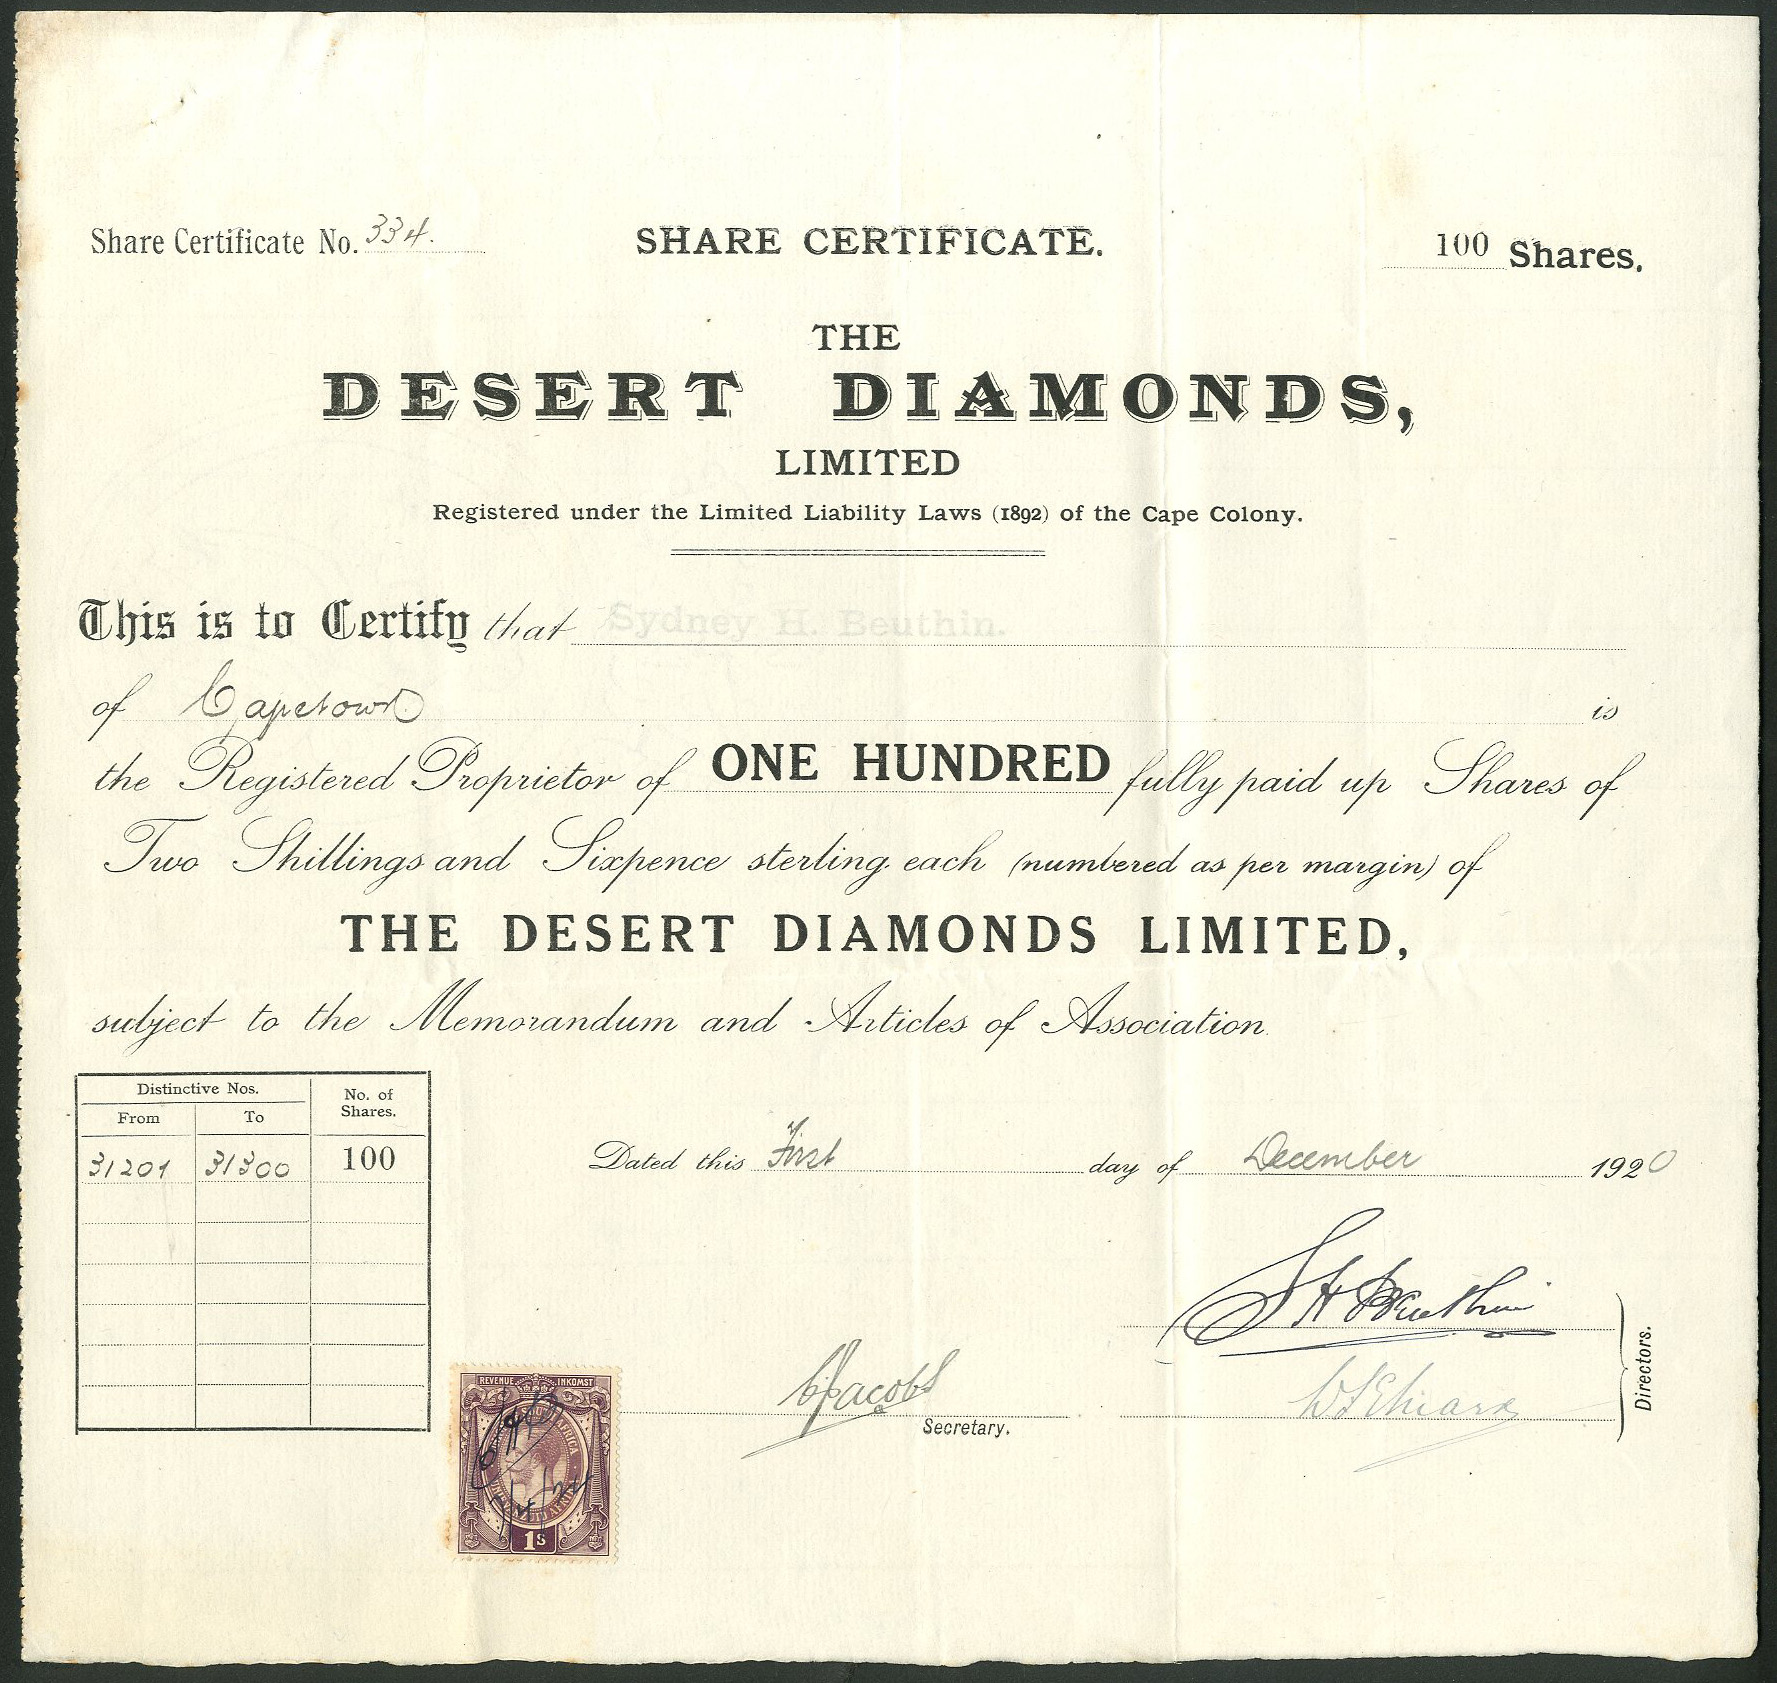 Share Certificate No. 334.
SHARE CERTIFICATE.
100 Shares.
THE
DESERT DIAMONDS,
LIMITED
Registered under the Limited Liability Laws (1892) of the Cape Colony.
This is to Certify that Sydney H Beuthin.
of Capetown is
the Registered Proprietor of ONE HUNDRED fully paid up Shares of
Two Shillings and Sixpence sterling each (numbered as per margin) of
THE DESERT DIAMONDS LIMITED,
subject to the Memorandum and Articles of Association.
Distinctive Nos. No. of Shares.
From To
31201 31300 100
Dated this First day of December 1920
S H Beuthin
Jacobs
Secretary.
Directors.
REVENUE INKOMST
1s